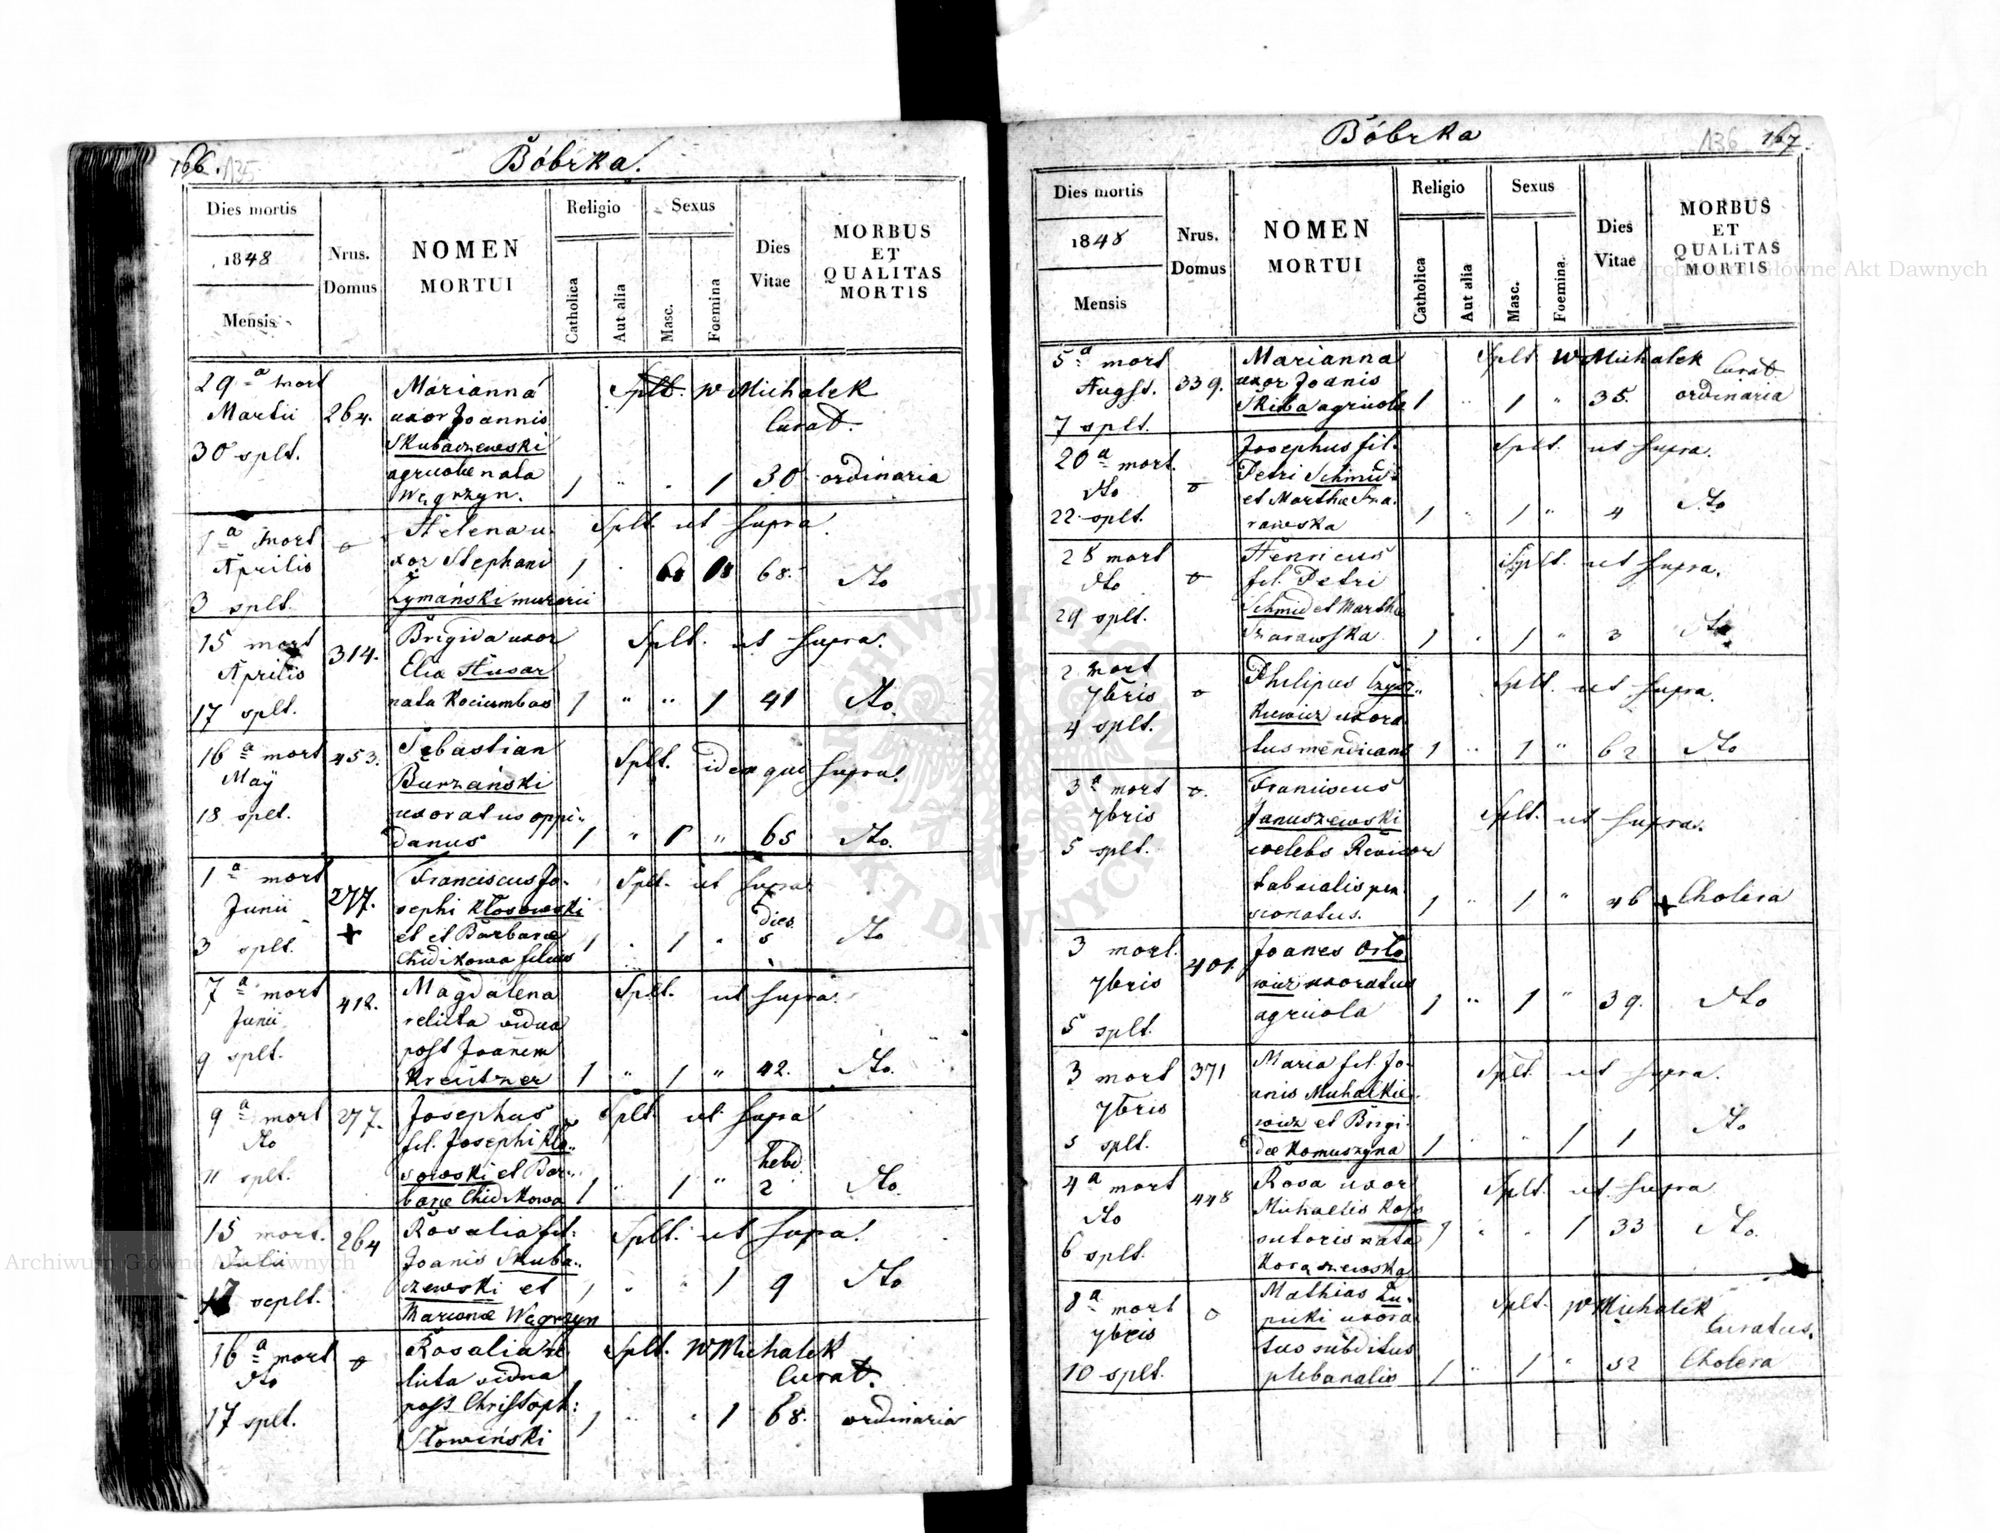 166. 135
Bóbrka.
Dies mortis
1848
Mensis
Nrus. Domus
NOMEN MORTUI
Religio
Catholica
Aut alia
Sexus
Masc.
Foemina
Dies Vitae
MORBUS ET QUALITAS MORTIS
29ª mort Martii 30 splt.
264.
Marianna
uxor Joannis
Skubaczewski
agricolae nata
Węgrzyn.
Splt. W Michalek
Curat.
1 " . 1 30 ordinaria
1ª mort Aprilis 3 splt.
o
Helena u-
xor Stephani
Zymański murarii
Splt. ut supra
1 68. dto
15 mort Aprilis 17 splt.
314.
Brigida uxor
Elia Husar
nata Kociumbas
Splt. ut supra.
1 " " 1 41 dto.
16ª mort Maÿ 18 splt.
453.
Sebastian
Burzański
uxoratus oppi-
danus
Splt. idem qui supra.
1 " 1 " 65 dto.
1ª mort Junii 3 splt.
277. +
Franciscus Jo-
sephi Kłosowski
et et Barbarae
Chidikowa filius
Splt. ut supra
dies
1 . 1 . 5 dto
7ª mort Junii 9 splt.
412.
Magdalena
relicta vidua
post Joanem
Kreutzner
Splt. ut supra.
1 " 1 " 42. dto.
9ª mort dto 11 splt.
277.
Josephus
fil. Josephi Kło-
sowski et Bar-
barae Chidikowa
Splt ut supra
hebd.
1 " 1 " 2 dto.
15 mort. Julii 17 seplt.
264
Rosalia fil.
Joanis Skuba-
czewski et
Marianae Węgrzyn
Splt. ut supra.
1 " " 1 9 dto
16ª mort dto 17 splt.
o
Rosalia re
licta vidua
post Christoph:
Słowiński
Splt. W Michalek
Curat.
1 " " 1 68. ordinaria
Bóbrka
136 167.
Dies mortis
1848
Mensis
Nrus. Domus
NOMEN MORTUI
Religio
Catholica
Aut alia
Sexus
Masc.
Foemina
Dies Vitae
MORBUS ET QUALITAS MORTIS
5ª mort Augst. 7 splt.
339.
Marianna
uxor Joanis
Skiba agricola
Splt W Michalek
Curat
1 " 1 " 35. ordinaria
20ª mort. dto 22 splt.
o
Josephus fil.
Petri Schmid
et Marthae Sza-
rawska
Splt. ut supra.
1 " 1 " 4 dto
28 mort dto 29 splt.
o
Henricus
fil. Petri
Schmid et Marthae
Szarawska
Splt. ut supra.
1 " 1 " 3 dto
2 mort 7bris 4 splt.
o
Philipus Czysz-
kiewicz uxora
tus mendicans
Splt. ut supra.
1 " 1 " 62 dto
3ª mort 7bris 5 splt.
o.
Franciscus
Januszewski
coelebs Revisor
tabacalis pen
sionatus.
Splt. ut supra.
1 " 1 " 46 + Cholera
3 mort. 7bris 5 splt.
401.
Joanes Orło
wicz uxoratus
agricola
1 " 1 " 39. dto
3 mort 7bris 5 splt.
371
Maria fil. Jo-
anis Michalkie-
wicz et Brigi-
dae Komuszyna
Splt ut supra.
1 " " 1 1 dto
4ª mort dto 6 splt.
448
Rosa uxor
Michaelis Koss
sutoris nata
Koraszewska
Splt. ut supra
1 " " 1 33 dto.
8ª mort 7bris 10 splt.
o
Mathias Łu-
picki uxora
tus subditus
plebanalis
Splt. W Michalek
Curatus.
1 " 1 " 52 Cholera
Archiwum Główne Akt Dawnych
Archiwum Główne Akt Dawnych
ARCHIWUM GŁÓWNE AKT DAWNYCH